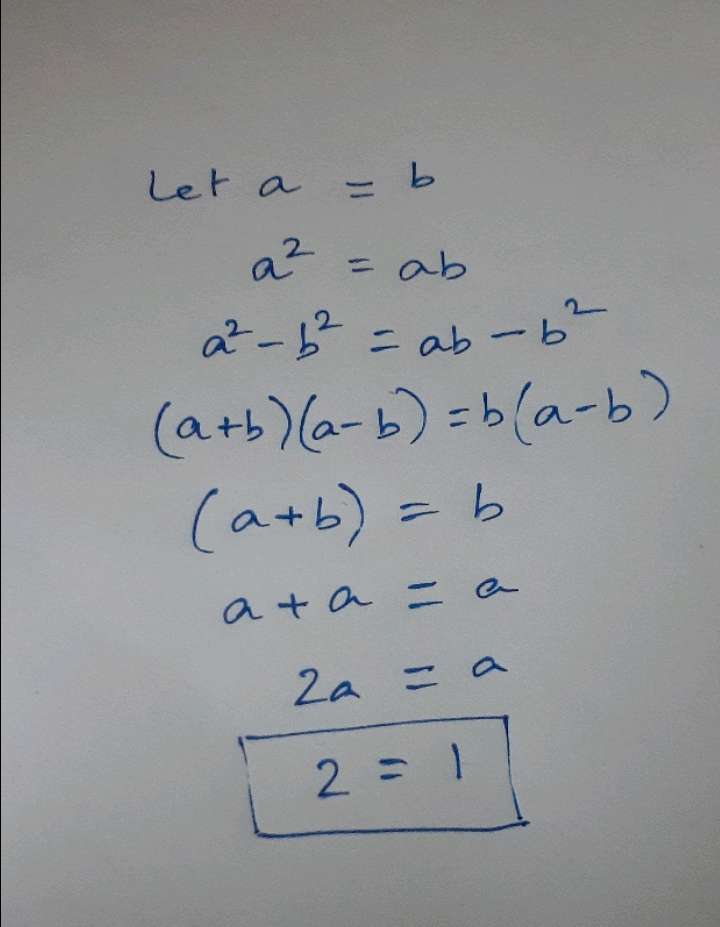 Let a = b
a² = ab
a² - b² = ab - b²
(a+b)(a-b) = b(a-b)
(a+b) = b
a + a = a
2a = a
2 = 1